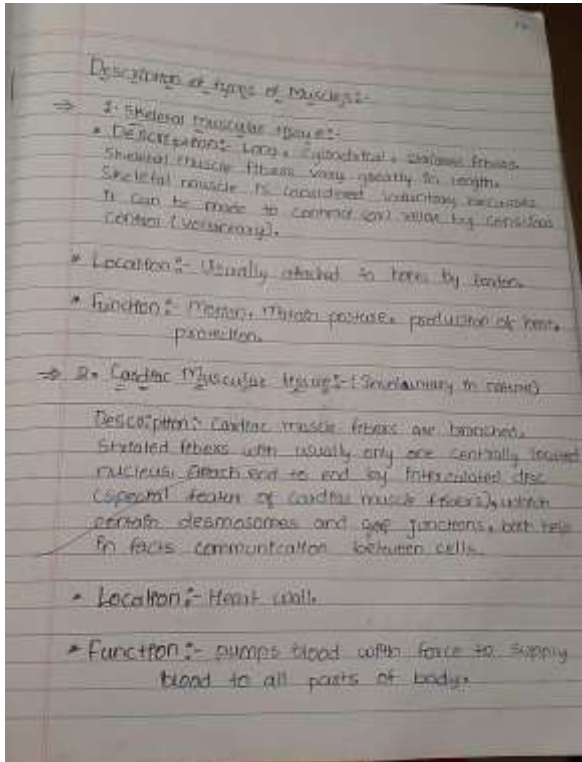 Description of types of Muscles:-
⇒ 1. Skeletal muscular tissue:-
• Description:- Long, cylindrical, striated fibers.
Skeletal muscle fibers vary greatly in length.
Skeletal muscle is considered voluntary because
it can be made to contract (or) relax by conscious
control (voluntary).
* Location:- Usually attached to bones by tendon.
* Function:- Motion, posture, production of heat,
protection.
⇒ 2. Cardiac Muscular tissue:- (Involuntary in nature)
Description:- Cardiac muscle fibers are branched,
Striated fibers with usually only one centrally located
nucleus. Attach end to end by Intercalated disc
(special of cardiac muscle fibers), which
contain desmosomes and gap junctions, both help
in communication between cells.
• Location:- Heart wall.
* Function:- pumps blood with force to supply
blood to all parts of body.